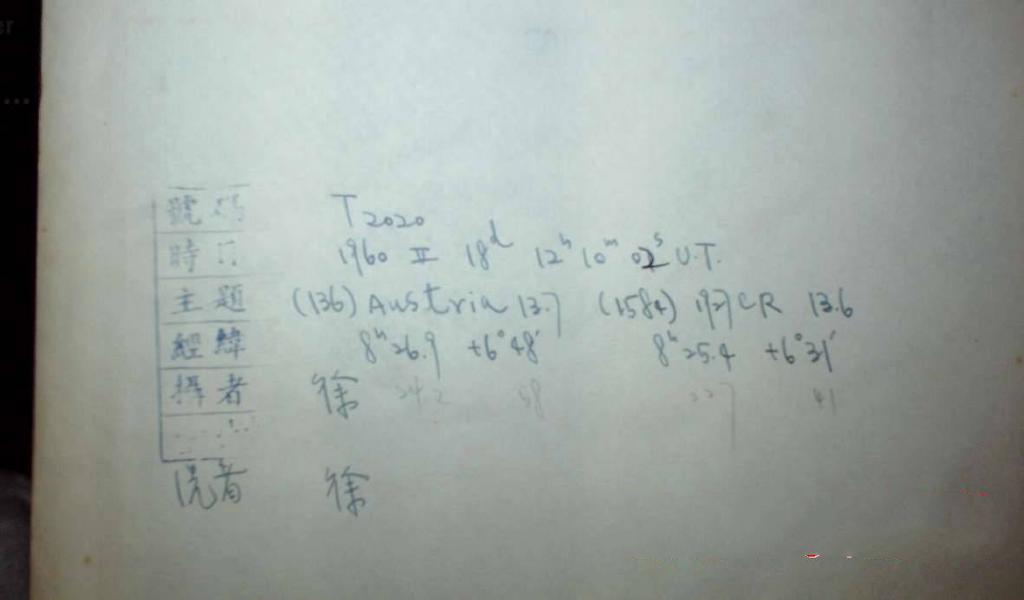 號碼 T2020
時日 1960 II 18d 12h 10m 02s U.T.
主題 (136) Austria 13.7 (1584) 1927CR 13.6
經緯 8h26.9 +6°48' 8h25.4 +6°31'
攝者 徐 24.2 58 227 41
洗者 徐